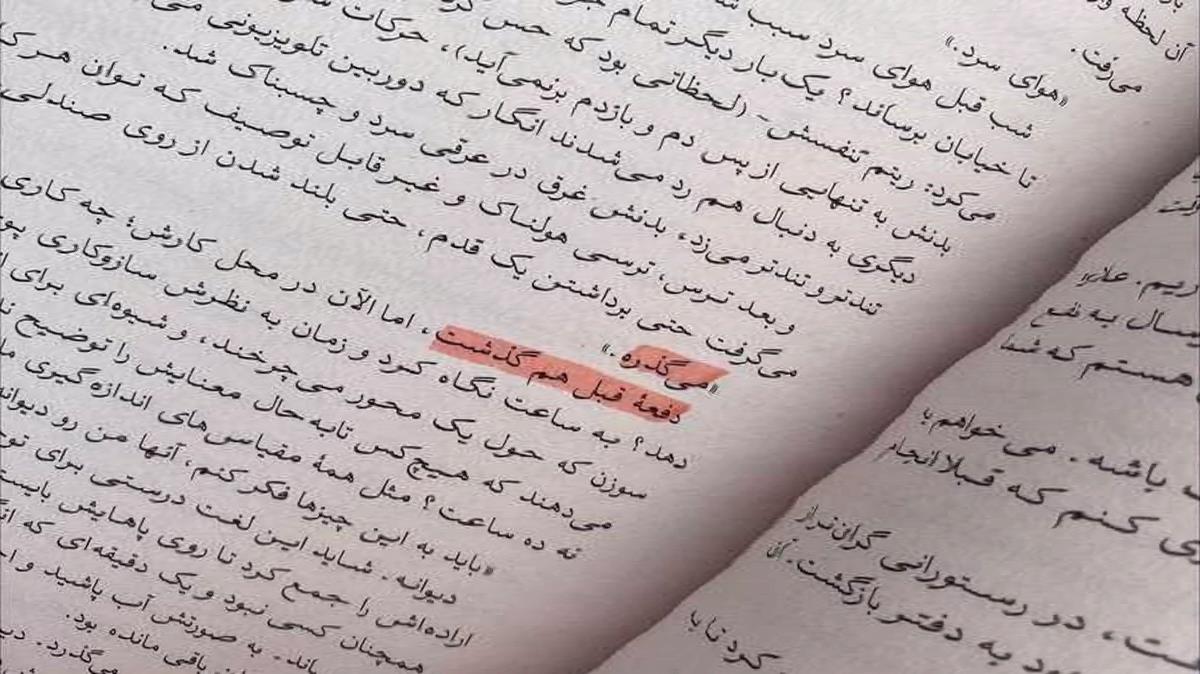 آن لحظه
می‌رفت.
«هوای سرد.»
شب قبل هوای سرد سبب
تا خیابان برساند؟ یک‌بار دیگر تمام
می‌کرد: ریتم تنفسش- (لحظاتی بود که حس
بدنش به تنهایی از پس دم و بازدم برنمی‌آید)، حرکات
دیگری به دنبال هم رد می‌شدند انگار که دوربین تلویزیونی
تندتر و تندتر می‌زد، بدنش غرق در عرقی سرد و چسبناک شد.
و بعد ترس، ترسی هولناک و غیرقابل توصیف که توان هر
می‌گرفت حتی برداشتن یک قدم، حتی بلند شدن از روی صندلی.
«می‌گذره.»
دفعهٔ قبل هم گذشت، اما الآن در محل کارش؛ چه کاری
دهد؟ به ساعت نگاه کرد و زمان به نظرش سازوکاری
سوزن که حول یک محور می‌چرخند، و شیوه‌ای برای
می‌دهند که هیچ‌کس تابه‌حال معنایش را توضیح
نه ده ساعت؟ مثل همهٔ مقیاس‌های اندازه‌گیری
«باید به این چیزها فکر کنم، آنها من رو دیوانه
دیوانه. شاید این لغت درستی برای
اراده‌اش را جمع کرد تا روی پاهایش
همچنان کسی نبود و یک دقیقه‌ای که
به صورتش آب پاشید و
باقی مانده بود.
می‌گذرد.
ریم.
به نفع
هستم که شما
باشه. می خواهم
کنم که قبلا انجام
در رستورانی گران‌تر از
به دفتر بازگشت.
کرد تا با